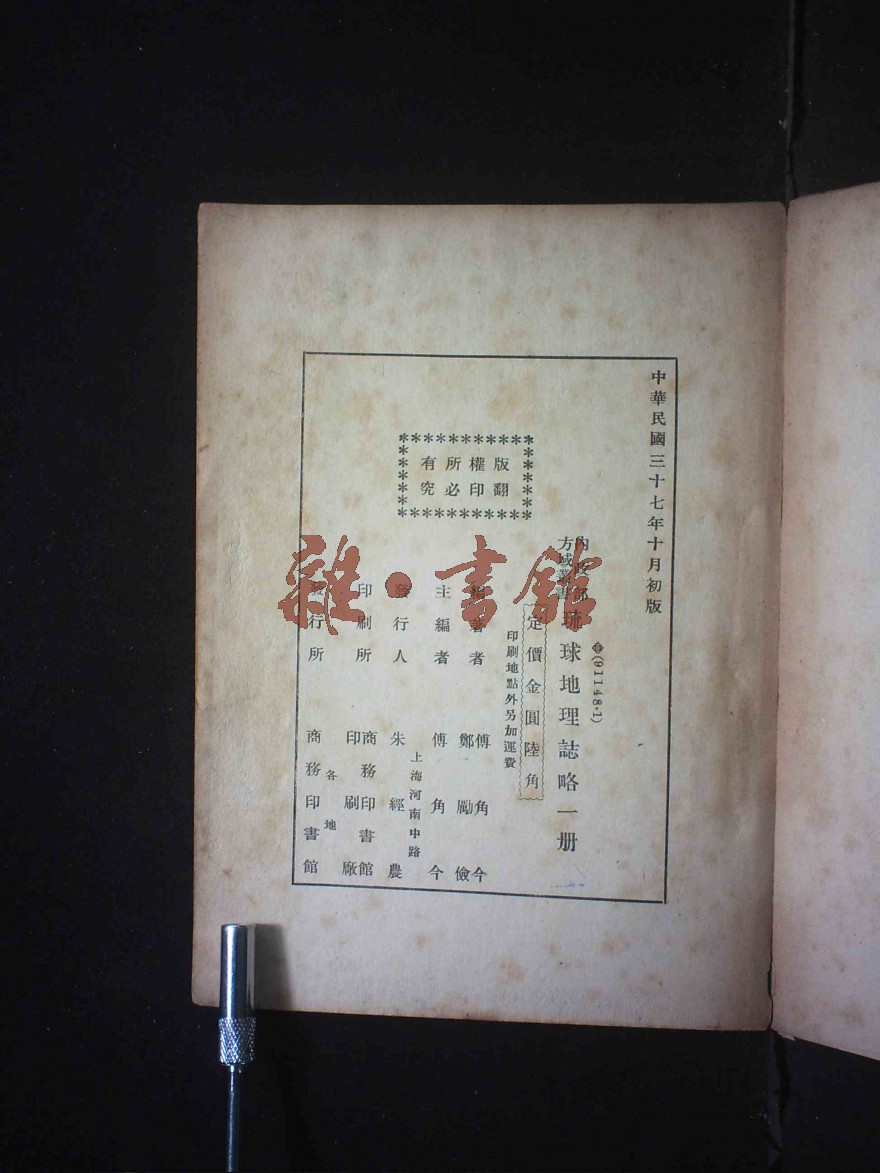 中華民國三十七年十月初版
(91148·1)
內政部方域叢書 琉球地理誌略一册
定價金圓陸角
印刷地點外另加運費
版權所有
翻印必究
編著者 傅角今 鄭勵儉
主編者 傅角今
上海河南中路
發行人 朱經農
印刷所 商務印書館印刷廠
各地
發行所 商務印書館
雜·書館